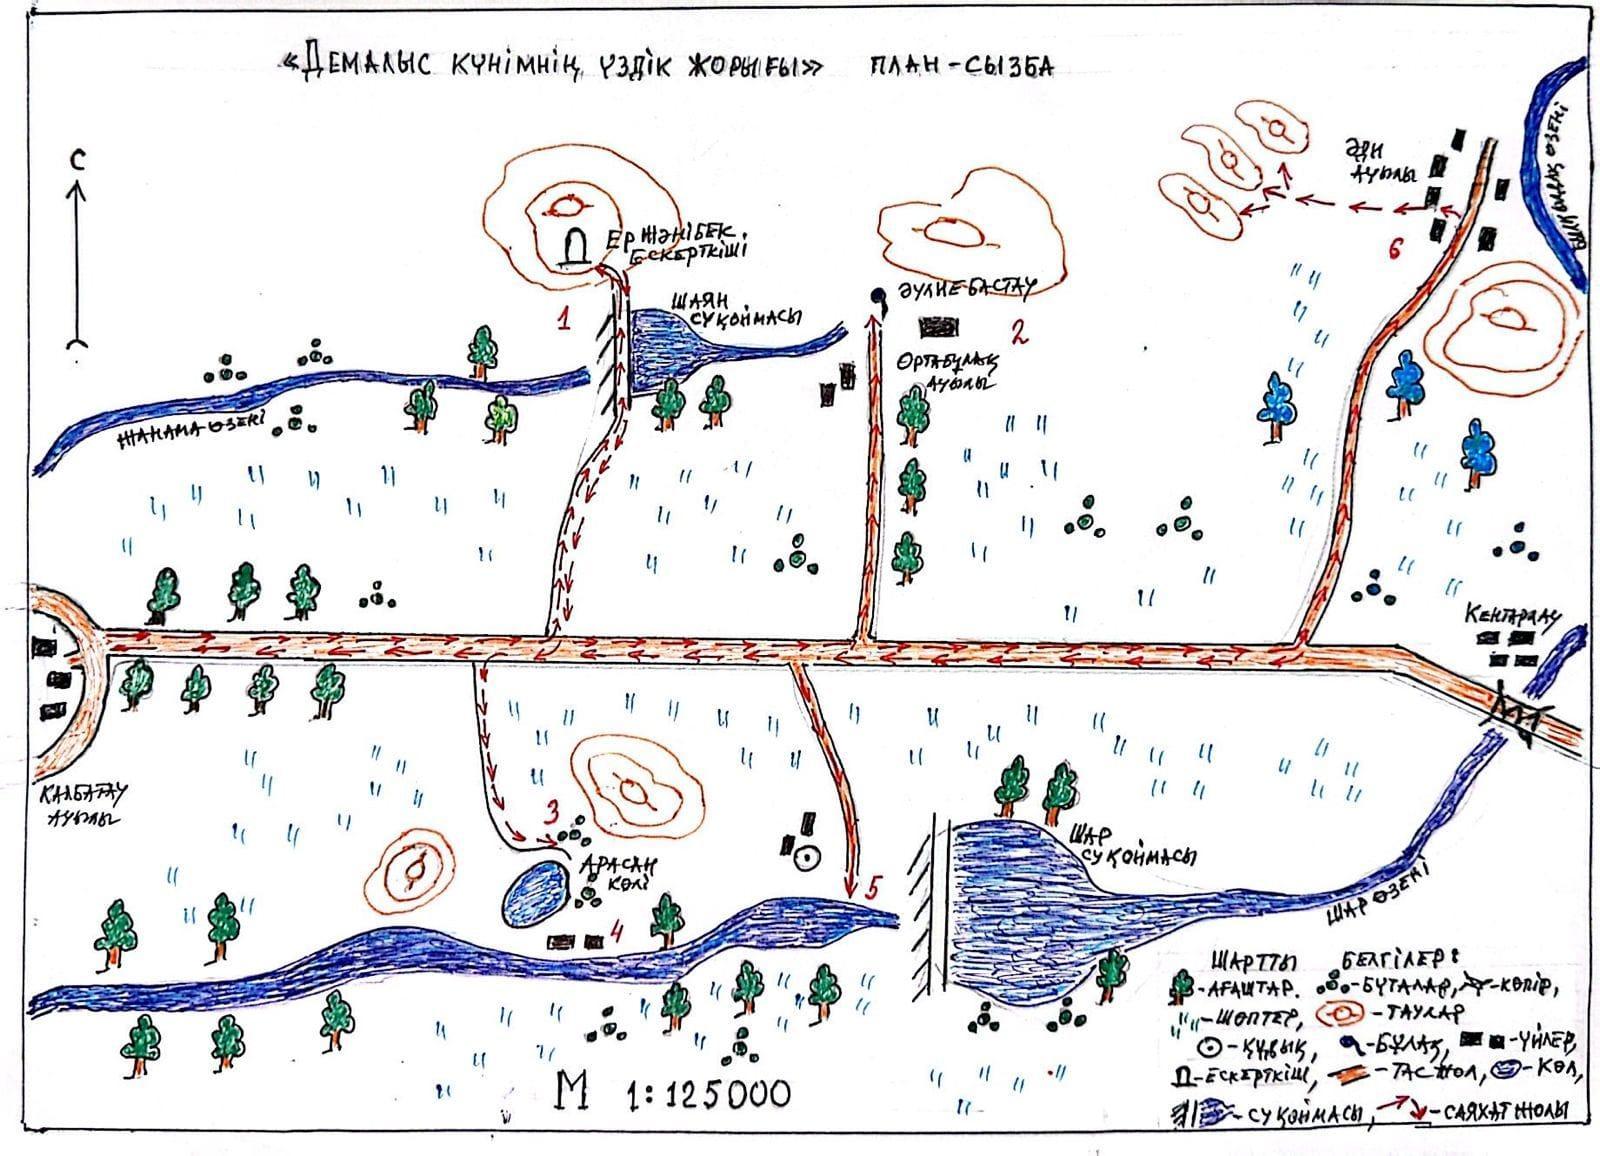 «Демалыс күнімнің үздік жорығы» план-сызба
С
Ер Жәнібек
ескерткіші
1
Шаян
суқоймасы
Әулие-бастау
2
Ортабұлақ
ауылы
6
ауылы
өзені
Жанама өзені
Кентарлау
Қалбатау
ауылы
3
Арасан
көлі
4
5
Шар
суқоймасы
Шар өзені
Шартты белгілер:
-ағаштар. -бұталар, -көпір,
-шөптер, -таулар
-құдық, -бұлақ, -үйлер,
-ескерткіш, -тас жол, -көл,
-суқоймасы, -саяхат жолы
М 1:125000